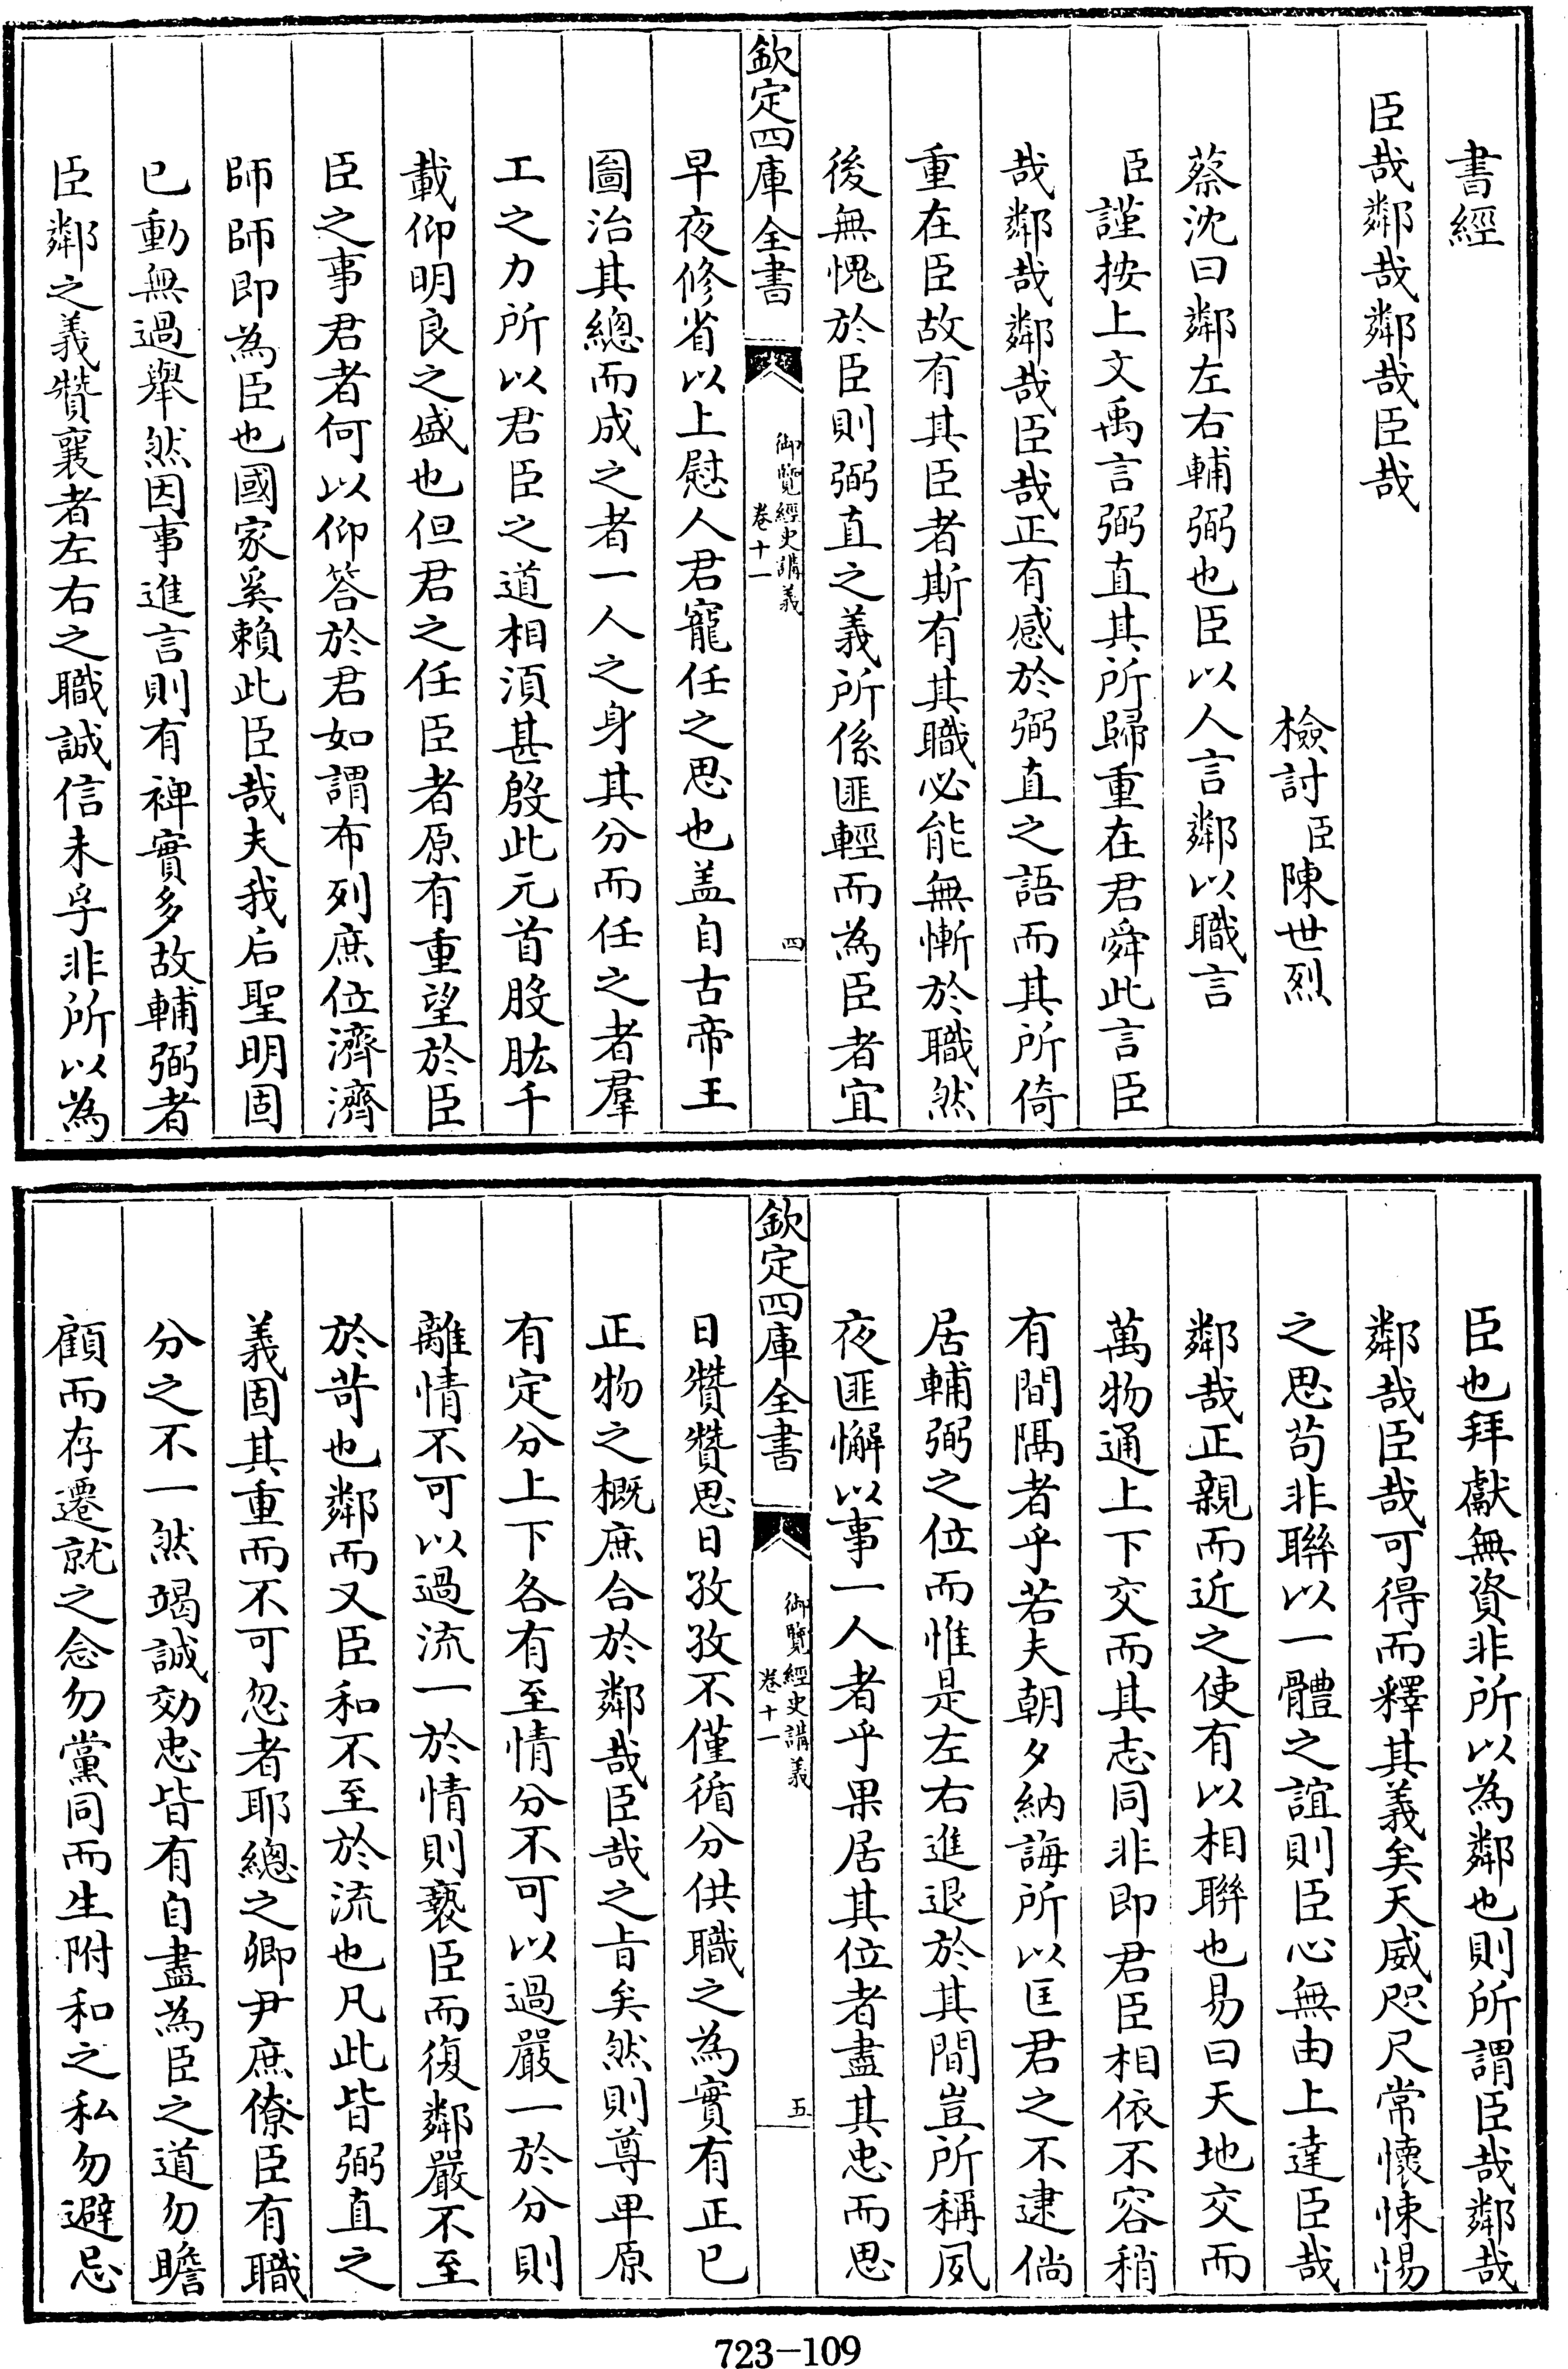 書經
臣哉鄰哉鄰哉臣哉
檢討臣陳世烈
蔡沈曰鄰左右輔弼也臣以人言鄰以職言
臣謹按上文禹言弼直其所歸重在君舜此言臣
哉鄰哉鄰哉臣哉正有感於弼直之語而其所倚
重在臣故有其臣者斯有其職必能無慚於職然
後無愧於臣則弼直之義所係匪輕而為臣者宜
欽定四庫全書
御覽經史講義
卷十一
四
早夜修省以上慰人君寵任之思也盖自古帝王
圖治其總而成之者一人之身其分而任之者羣
工之力所以君臣之道相須甚殷此元首股肱千
載仰明良之盛也但君之任臣者原有重望於臣
臣之事君者何以仰答於君如謂布列庶位濟濟
師師即為臣也國家奚賴此臣哉夫我后聖明固
已動無過舉然因事進言則有裨實多故輔弼者
臣鄰之義贊襄者左右之職誠信未孚非所以為
臣也拜獻無資非所以為鄰也則所謂臣哉鄰哉
鄰哉臣哉可得而釋其義矣天威咫尺常懷悚惕
之思苟非聯以一體之誼則臣心無由上達臣哉
鄰哉正親而近之使有以相聯也易曰天地交而
萬物通上下交而其志同非即君臣相依不容稍
有間隔者乎若夫朝夕納誨所以匡君之不逮倘
居輔弼之位而惟是左右進退於其間豈所稱夙
夜匪懈以事一人者乎果居其位者盡其忠而思
欽定四庫全書
御覽經史講義
卷十一
五
日贊贊思日孜孜不僅循分供職之為實有正已
正物之概庶合於鄰哉臣哉之旨矣然則尊卑原
有定分上下各有至情分不可以過嚴一於分則
離情不可以過流一於情則褻臣而復鄰嚴不至
於苛也鄰而又臣和不至於流也凡此皆弼直之
義固其重而不可忽者耶總之卿尹庶僚臣有職
分之不一然竭誠効忠皆有自盡為臣之道勿瞻
顧而存遷就之念勿黨同而生附和之私勿避忌
723-109